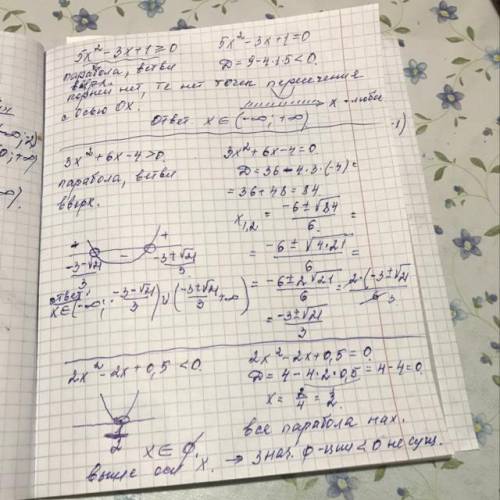 5x² - 3x + 1 ≥ 0
5x² - 3x + 1 = 0
парабола, ветви
вверх.
D = 9 - 4·1·5 < 0.
корней нет, то нет точек пересечения
с осью OX.
x - любое
Ответ x ∈ (-∞; +∞)
3x² + 6x - 4 > 0.
парабола, ветви
вверх.
3x² + 6x - 4 = 0.
D = 36 - 4·3·(-4) =
= 36 + 48 = 84.
x₁,₂ = (-6 ± √84)/6 =
= (-6 ± √(4·21))/6 =
= (-6 ± 2√21)/6 = 2·(-3 ± √21)/6 3
= (-3 ± √21)/3
+ - +
(-3-√21)/3 (-3±√21)/3
Ответ:
x ∈ (-∞; (-3-√21)/3) ∪ ((-3±√21)/3; +∞)
2x² - 2x + 0,5 < 0.
2x² - 2x + 0,5 = 0.
D = 4 - 4·2·0,5 = 4 - 4 = 0.
x = 2/4 = 1/2.
1/2
x ∈ ∅.
все парабола нах.
выше оси x. → знач. ф-ции < 0 не сущ.